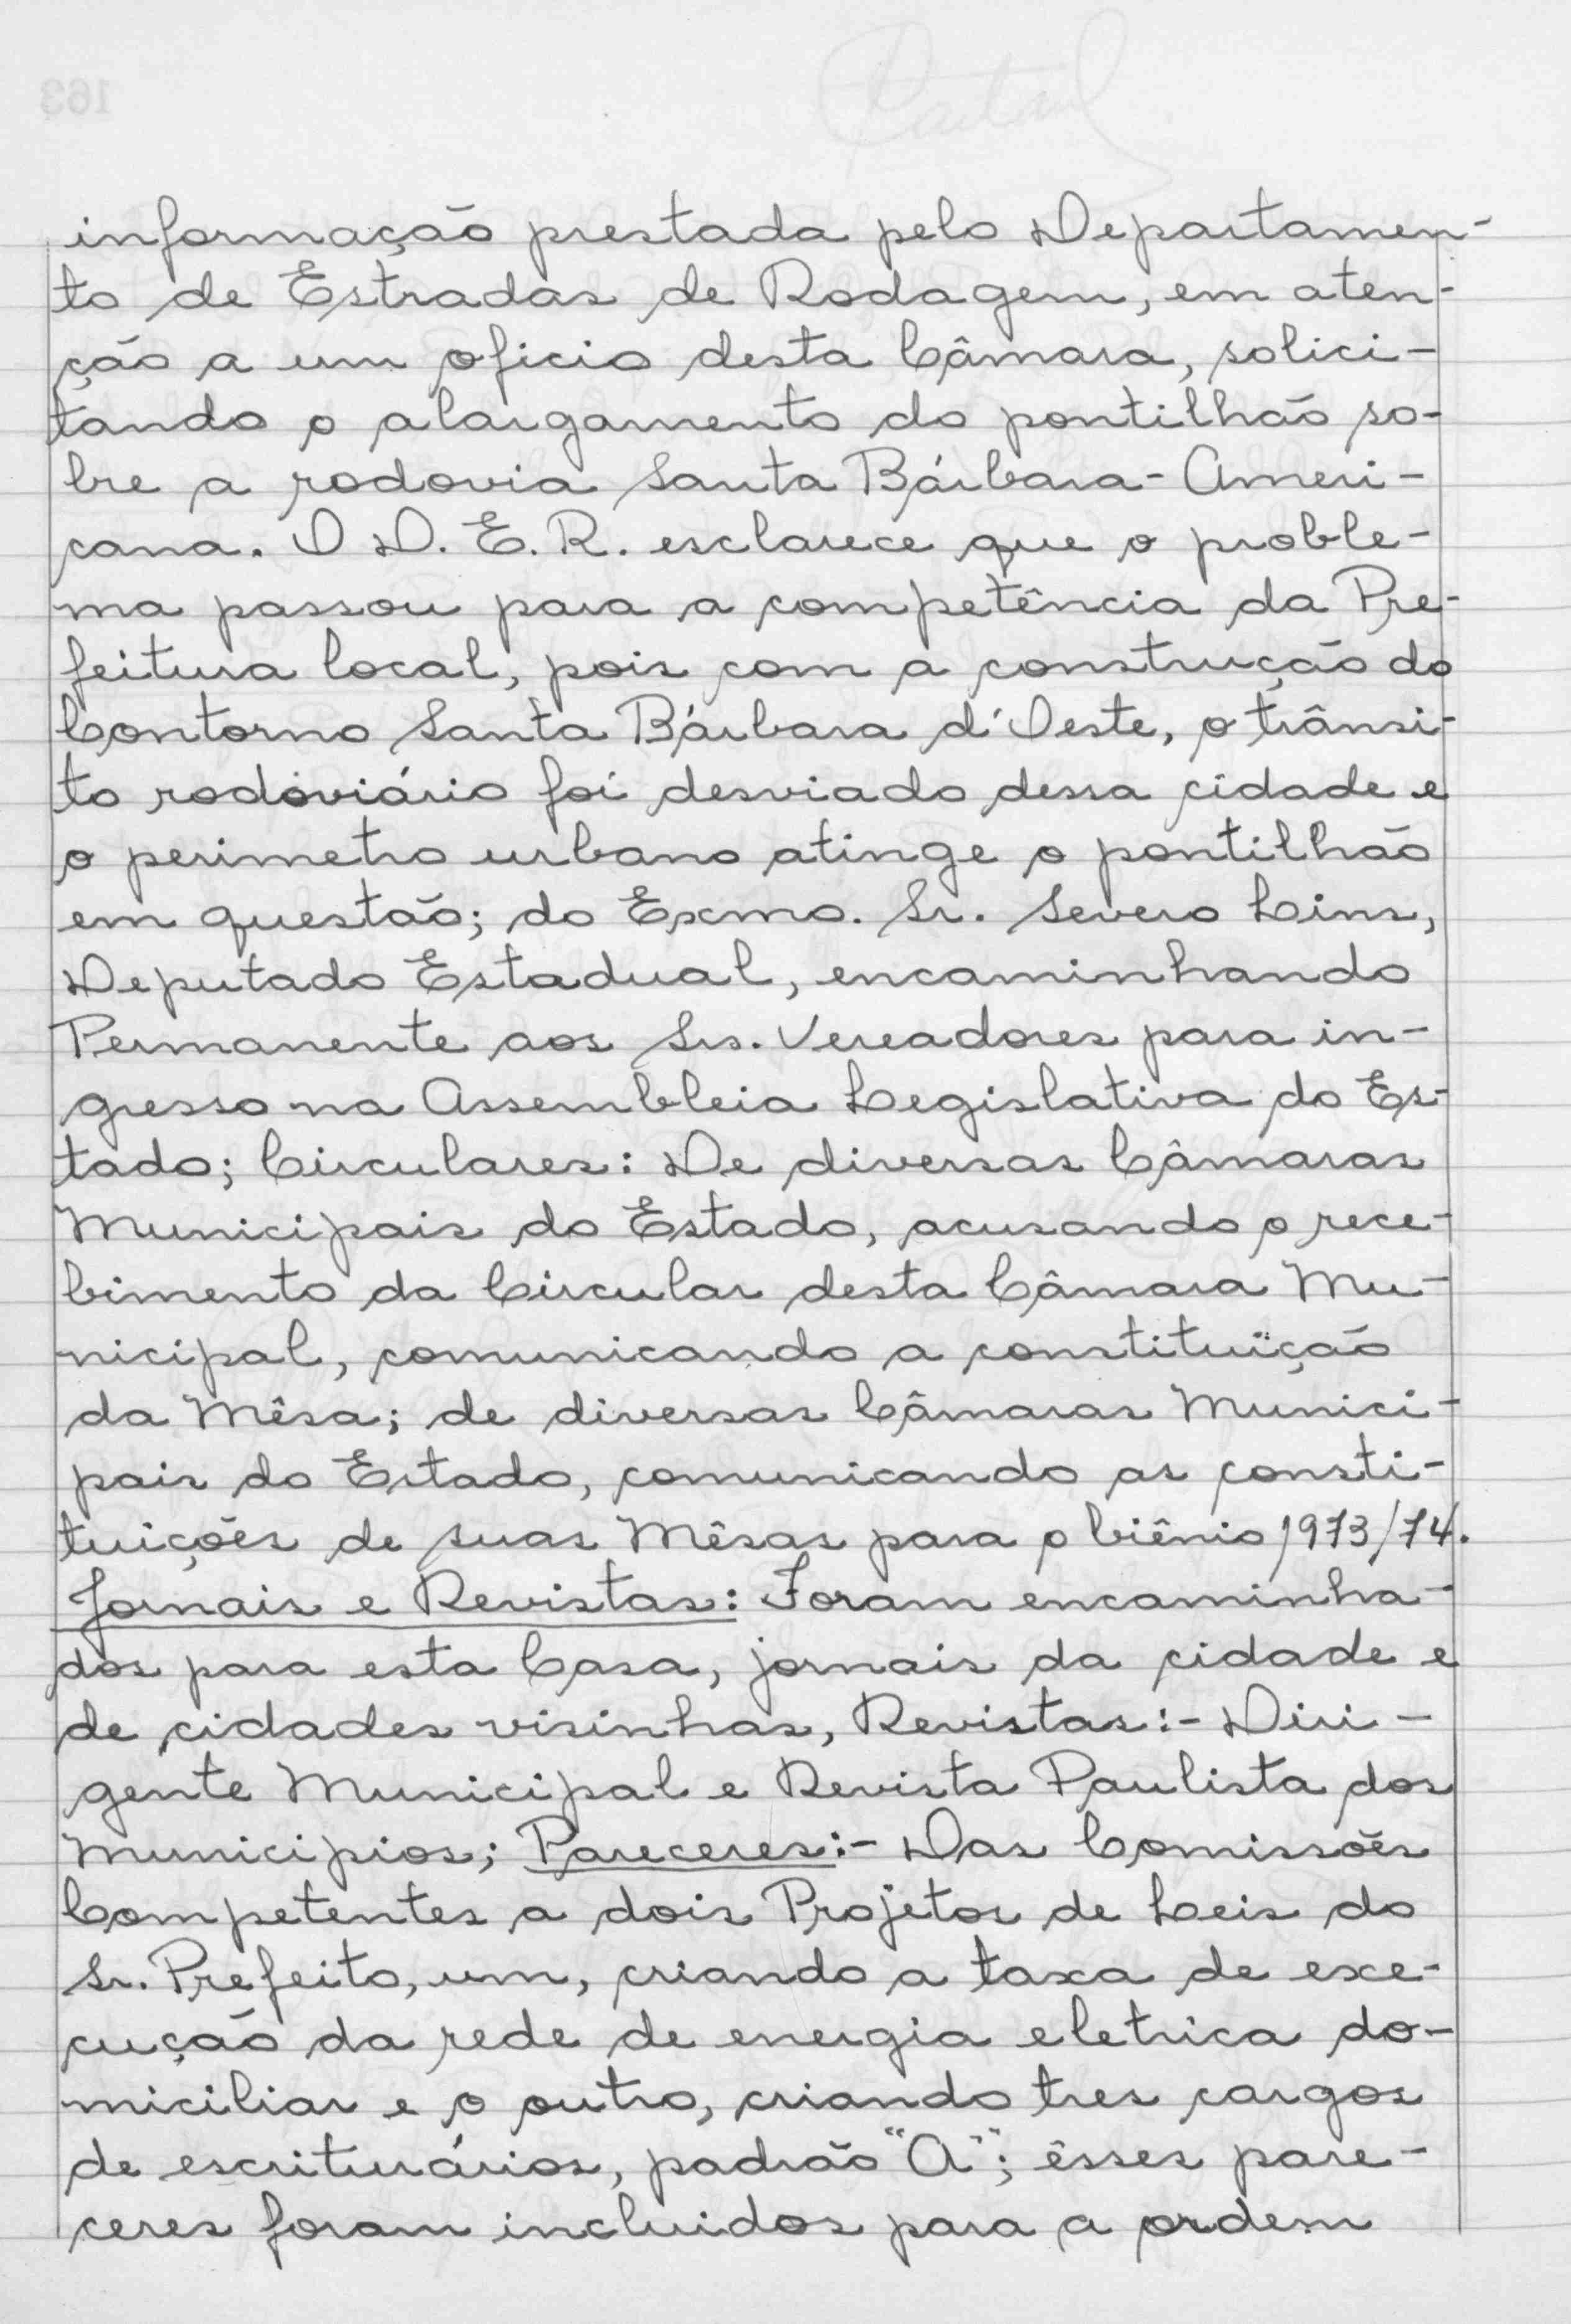 informação prestada pelo Departamen-
to de Estradas de Rodagem, em aten-
ção a um oficio desta Câmara, solici-
tando o alargamento do pontilhão so-
bre a rodovia Santa Bárbara-Ameri-
cana. O D.E.R. esclarece que o proble-
ma passou para a competência da Pre-
feitura local, pois com a construção do
Contorno Santa Bárbara d'Oeste, o trânsi-
to rodoviário foi desviado dessa cidade e
o perimetro urbano atinge o pontilhão
em questão; do Exmo. Sr. Severo Lins,
Deputado Estadual, encaminhando
Permanente aos Srs. Vereadores para in-
gresso na Assembleia Legislativa do Es-
tado; Circulares: De diversas Câmaras
Municipais do Estado, acusando o rece-
bimento da Circular desta Câmara Mu-
nicipal, comunicando a constituïção
da Mêsa; de diversas Câmaras Munici-
pais do Estado, comunicando as consti-
tuições de suas Mêsas para o biênio 1973/74.
Jornais e Revistas: Foram encaminha-
dos para esta Casa, jornais da cidade e
de cidades visinhas, Revistas:- Diri-
gente Municipal e Revista Paulista dos
Municipios; Pareceres:- Das Comissões
Competentes a dois Projetos de Leis do
Sr. Prefeito, um, criando a taxa de exe-
cução da rede de energia eletrica do-
miciliar e o outro, criando tres cargos
de escriturários, padrão "A"; êsses pare-
ceres foram incluidos para a ordem